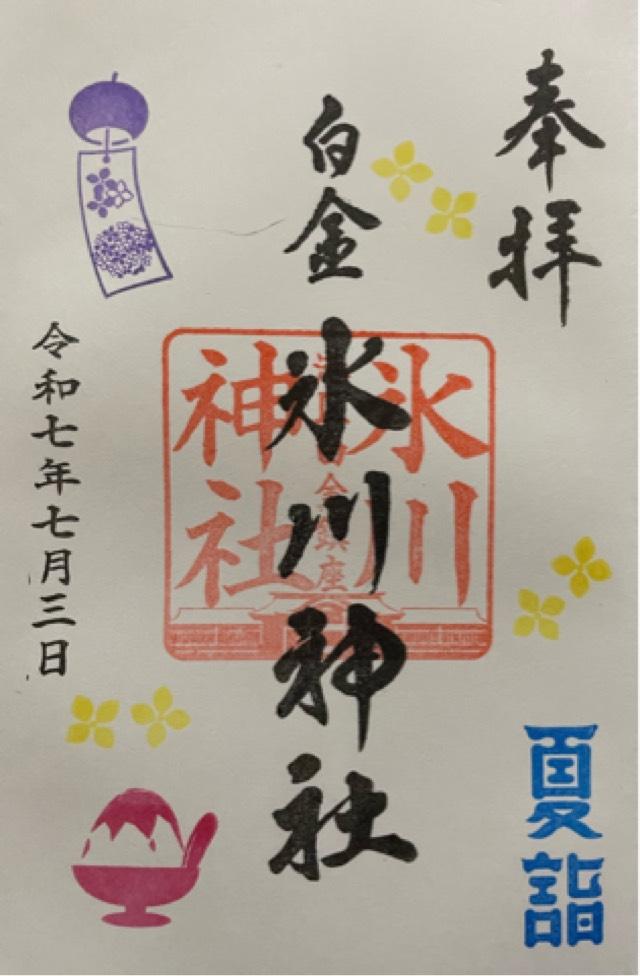 奉拝
白金
氷川神社
氷川
神社
夏詣
令和七年七月三日